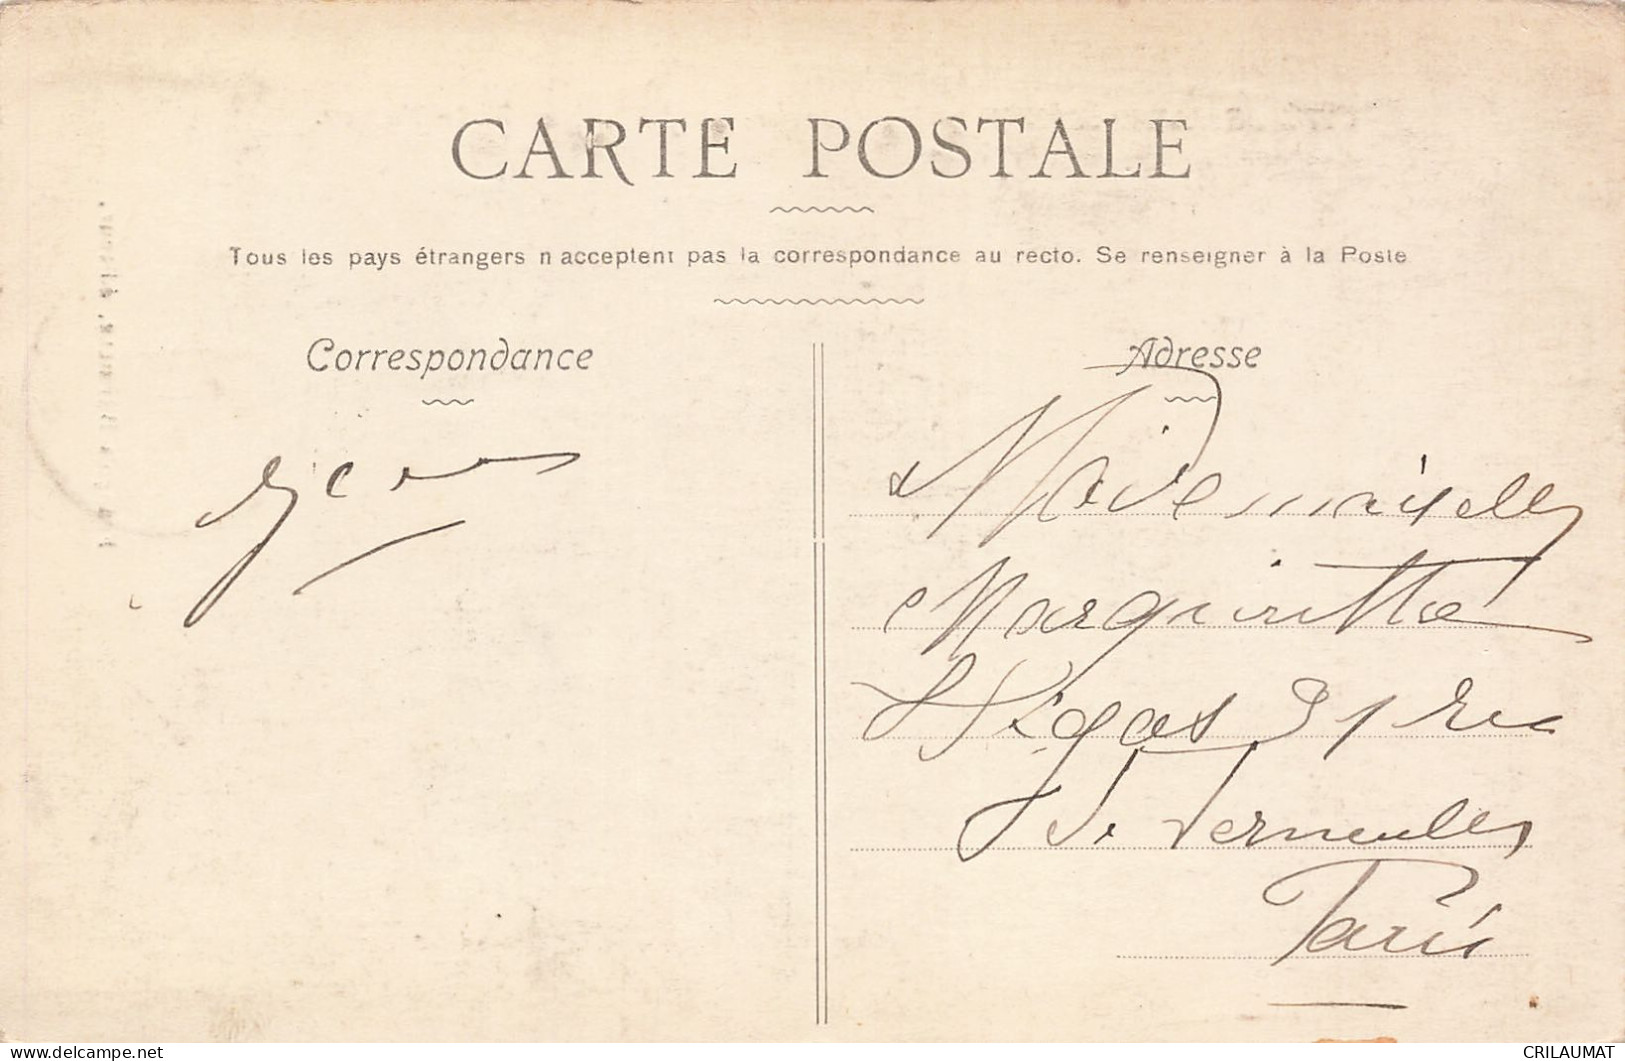 CARTE POSTALE
Tous les pays étrangers n'acceptent pas la correspondance au recto. Se renseigner à la Poste
Correspondance
Adresse
Mademoiselle
Marguerite
31 rue
de Verneuil
Paris
CRILAUMAT